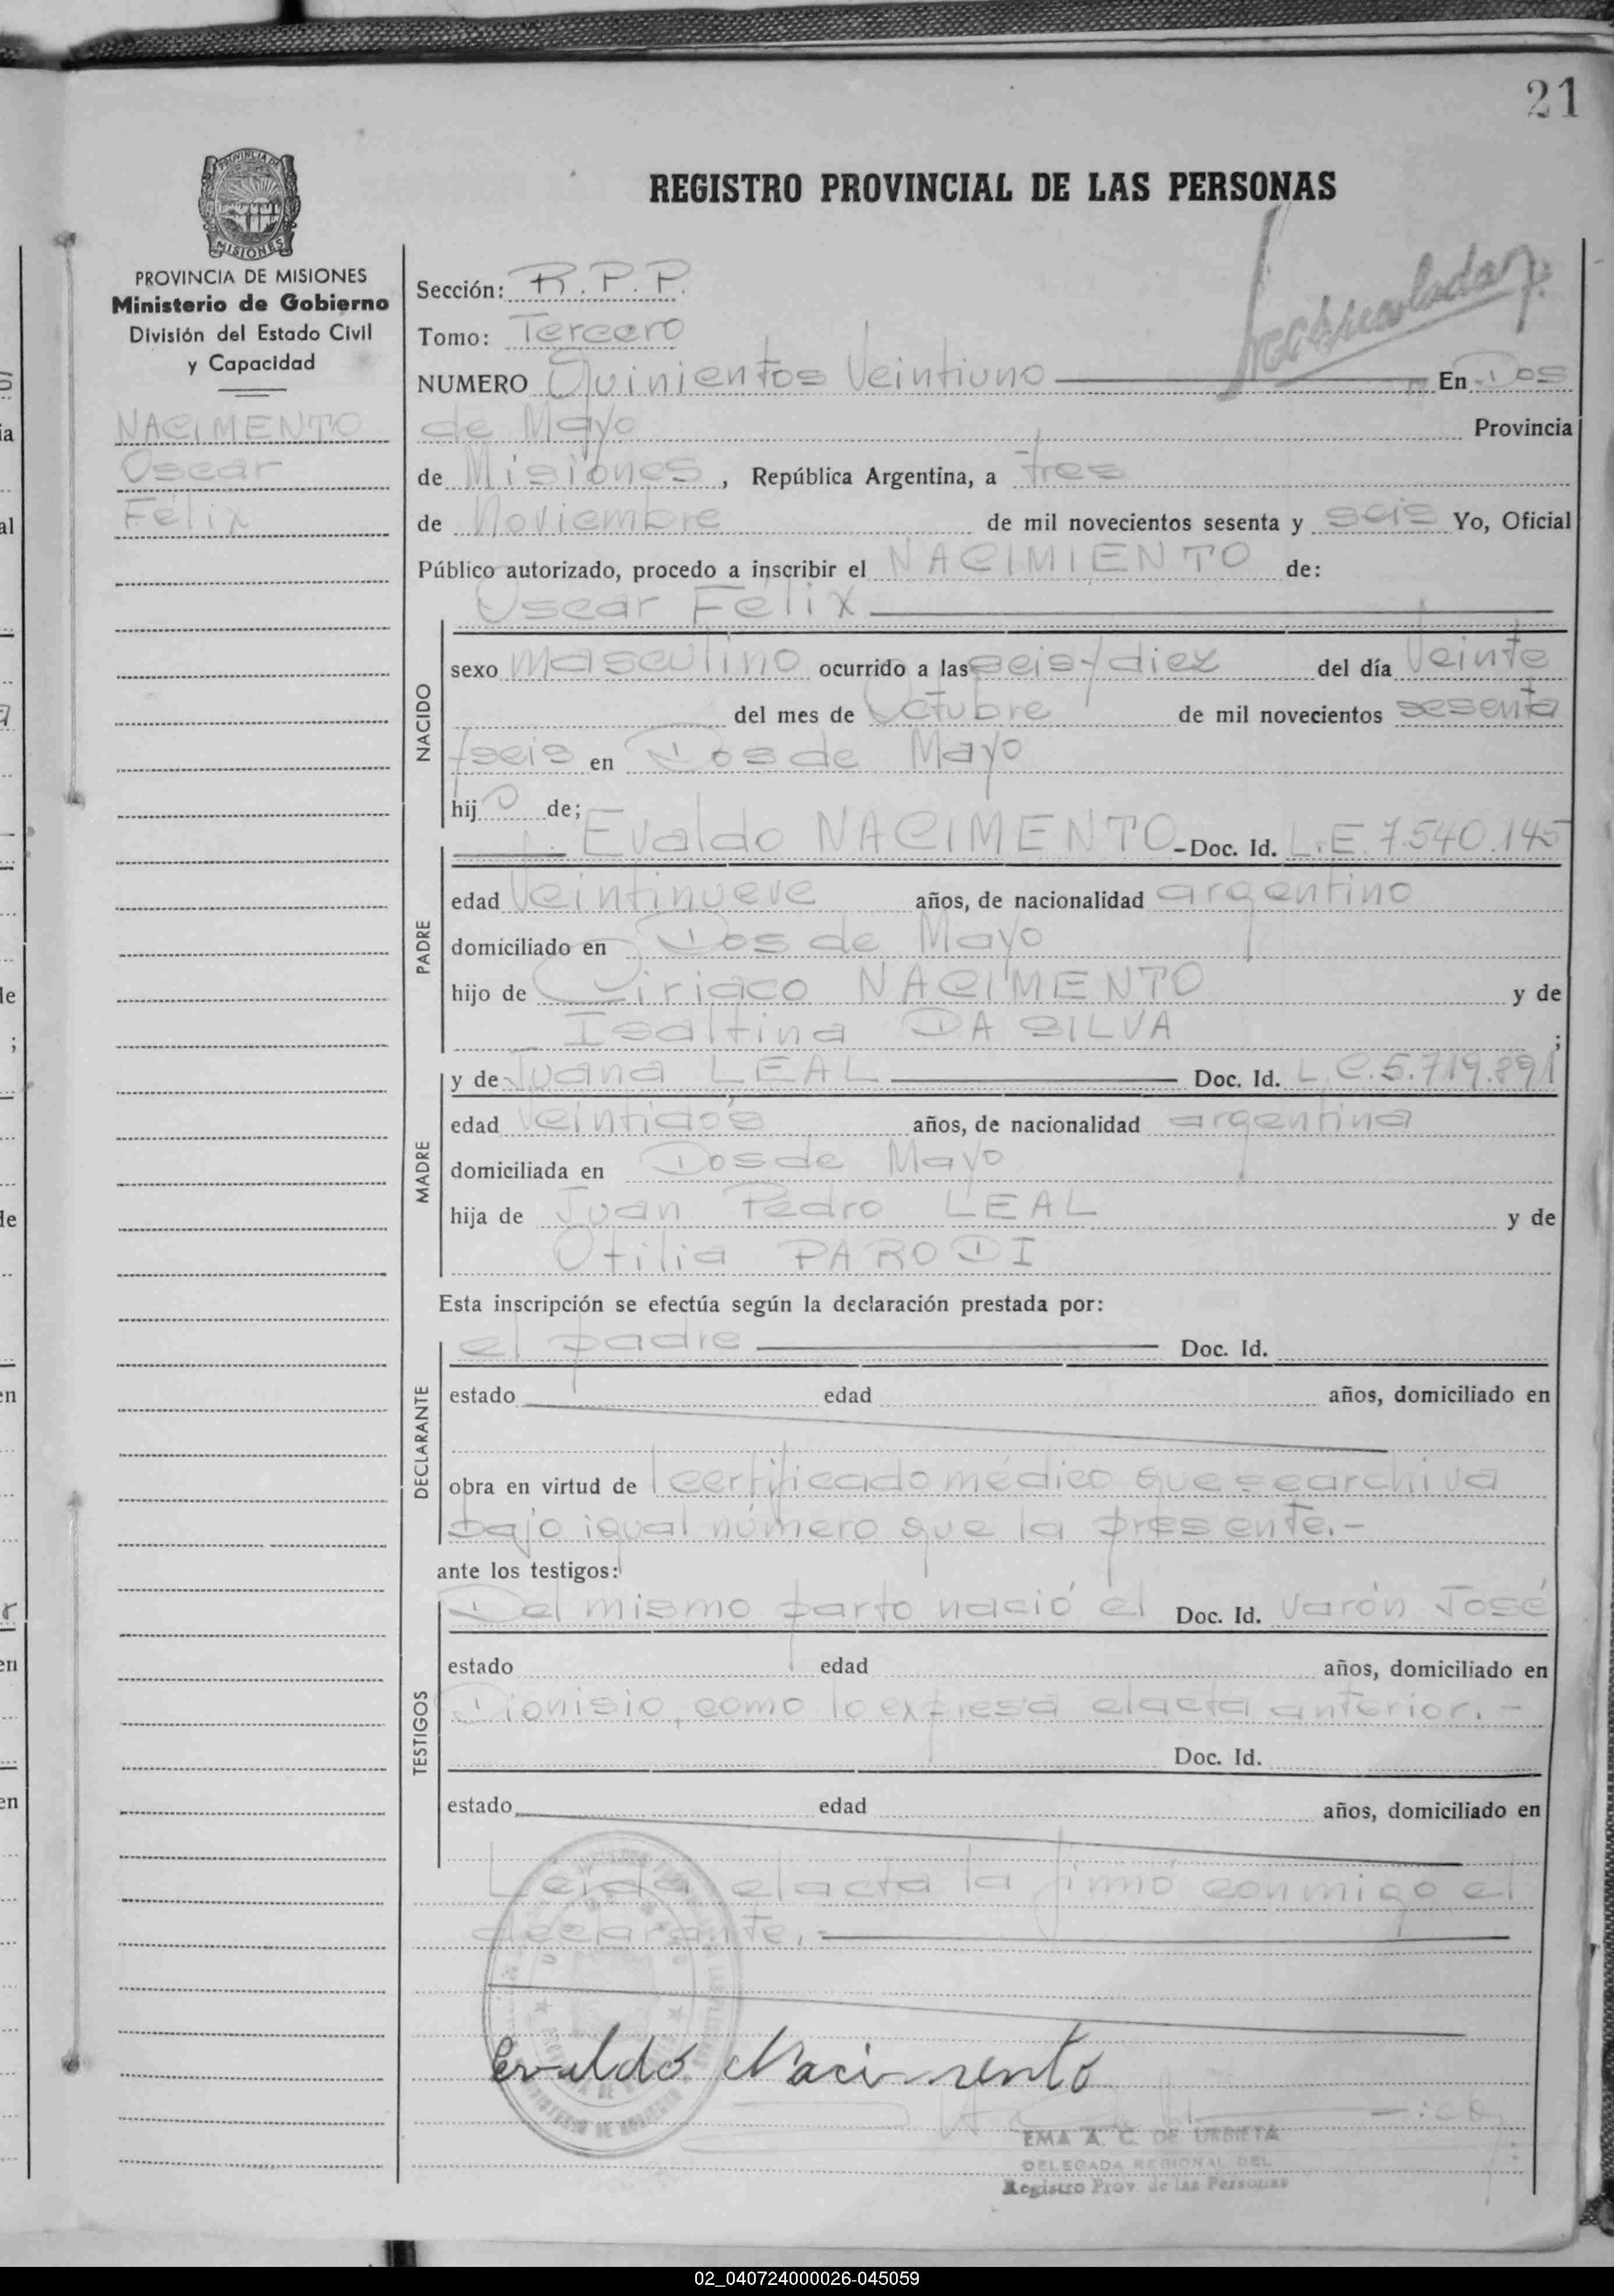 21
REGISTRO PROVINCIAL DE LAS PERSONAS
PROVINCIA DE MISIONES
MISIONES
PROVINCIA DE MISIONES
Ministerio de Gobierno
División del Estado Civil
y Capacidad
NACIMENTO
Oscar
Félix
Sección: R.P.P.
Tomo: Tercero
NUMERO Quinientos Veintiuno En Dos
de Mayo Provincia
de Misiones, República Argentina, a tres
de Noviembre de mil novecientos sesenta y seis Yo, Oficial
Público autorizado, procedo a inscribir el NACIMIENTO de:
Oscar Félix
NACIDO
sexo masculino ocurrido a las seis y diez del día Veinte
del mes de Octubre de mil novecientos sesenta
y seis en Dos de Mayo
hijo de;
Evaldo NACIMENTO - Doc. Id. L.E. 7.540.145
PADRE
edad Veintinueve años, de nacionalidad argentino
domiciliado en Dos de Mayo
hijo de Ciriaco NACIMENTO y de
Isaltina DA SILVA ;
MADRE
y de Juana LEAL Doc. Id. L.C. 5.719.891
edad Veintidós años, de nacionalidad argentina
domiciliada en Dos de Mayo
hija de Juan Pedro LEAL y de
Otilia PARODI
Esta inscripción se efectúa según la declaración prestada por:
DECLARANTE
el padre Doc. Id.
estado edad años, domiciliado en
obra en virtud de certificado médico que se archiva
bajo igual número que la presente.-
ante los testigos:
TESTIGOS
Del mismo parto nació el Doc. Id. varón José
estado edad años, domiciliado en
Dionisio, como lo expresa el acta anterior.-
Doc. Id.
estado edad años, domiciliado en
Leída el acta la firmó conmigo el
declarante.-
Evaldo Nacimento
EMA A. C. DE URBIETA
DELEGADA REGIONAL DEL
Registro Prov. de las Personas
02_040724000026-045059